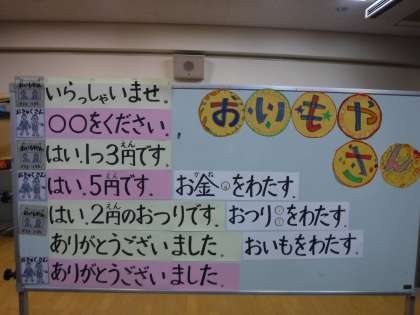 おいもやさん
いらっしゃいませ。
○○をください。
はい。1つ3円です。
えん
はい。5円です。
えん
お金をわたす。
かね
はい。2円のおつりです。
えん
おつりをわたす。
ありがとうございました。
おいもをわたす。
ありがとうございました。
おきゃくさん
おきゃくさん
おきゃくさん